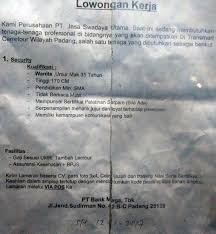 Lowongan Kerja
Kami Perusahaan PT. Jasa Swadaya Utama. Saat ini sedang membutuhkan
tenaga-tenaga profesional di bidangnya yang akan ditempatkan Di Transmart
Carrefour Wilayah Padang, salah satu tenaga yang dibutuhkan sebagai berikut
1. Security
Kualifikasi :
- Wanita Umur Mak 35 Tahun
- Tinggi 170 CM
- Pendidikan Min. SMA
- Tidak Buta Huruf
- Mempunyai Sertifikat Pelatihan Satpam (bila Ada)
- Berpenampilan menarik jujur dan loyal terhadap
- Memiliki kemampuan komunikasi yang baik
Fasilitas
- Gaji Sesuai UMR Tambah Lembur
- Asuransi Kesehatan + BPJS
Kirim Lamaran beserta CV, pas foto 3x4,
Lamaran melalui VIA POS Ke
PT Bank Mega, Tbk
Jl.Jend.Sudirman No.
Padang